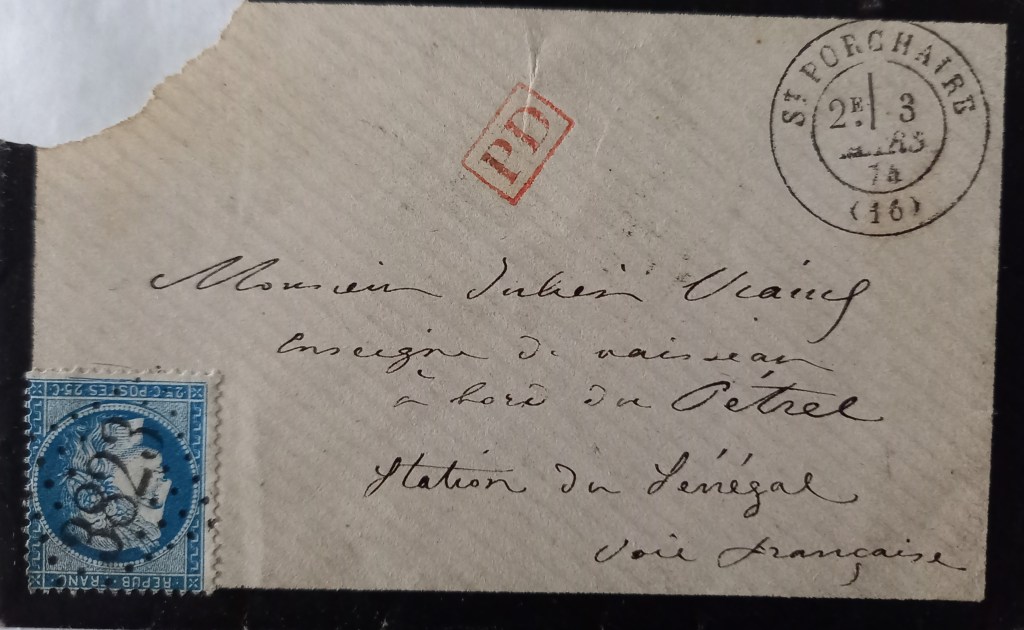 ST PORCHAIRE
2E 3
MARS
74
(16)
PD
Monsieur Julien Viaud
Enseigne de vaisseau
à bord du Pétrel
Station du Sénégal
voie française
25·C·POSTES·25·C
3823
REPUB·FRANC